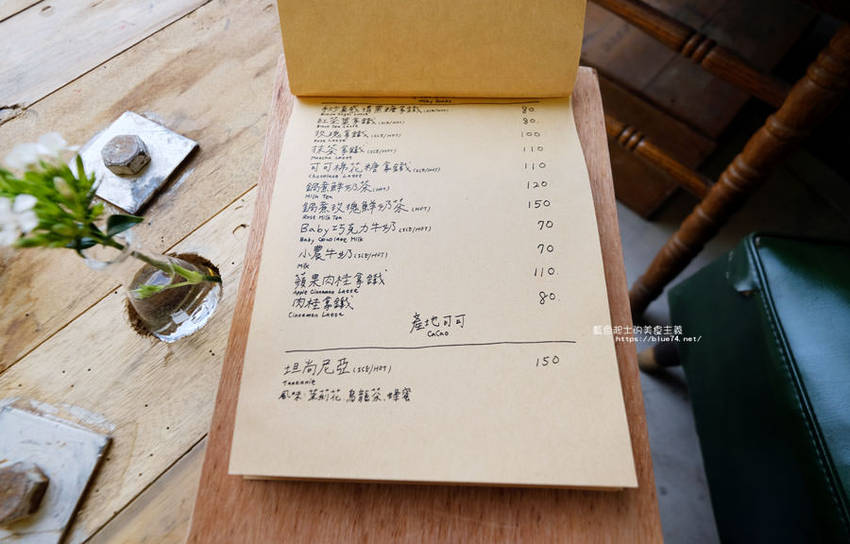 Milky Series
黑糖拿鐵 (ICE/HOT) 80.
Brown Sugar Latte
紅茶葉拿鐵 (ICE/HOT) 80.
Black Tea Latte
玫瑰拿鐵 (ICE/HOT) 100
Rose Latte
抹茶拿鐵 (ICE/HOT) 110
Matcha Latte
可可棉花糖拿鐵 (ICE/HOT) 110
Chocolate Latte
鍋煮鮮奶茶 (HOT) 120
Milk Tea
鍋煮玫瑰鮮奶茶 (HOT) 150
Rose Milk Tea
Baby巧克力牛奶 (ICE/HOT) 70
Baby Chocolate Milk
小農牛奶 (ICE/HOT) 70
Milk
蘋果肉桂拿鐵 110.
Apple Cinnamon Latte
肉桂拿鐵 80.
Cinnamon Latte
產地可可
CaCao
坦尚尼亞 (ICE/HOT) 150
Tanzania
風味:茉莉花、烏龍茶、蜂蜜
藍色起士的美食主義
https://blue74.net/